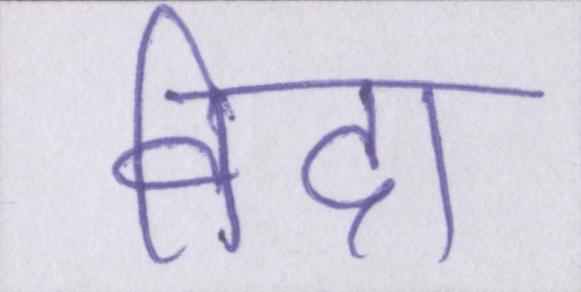 विदा